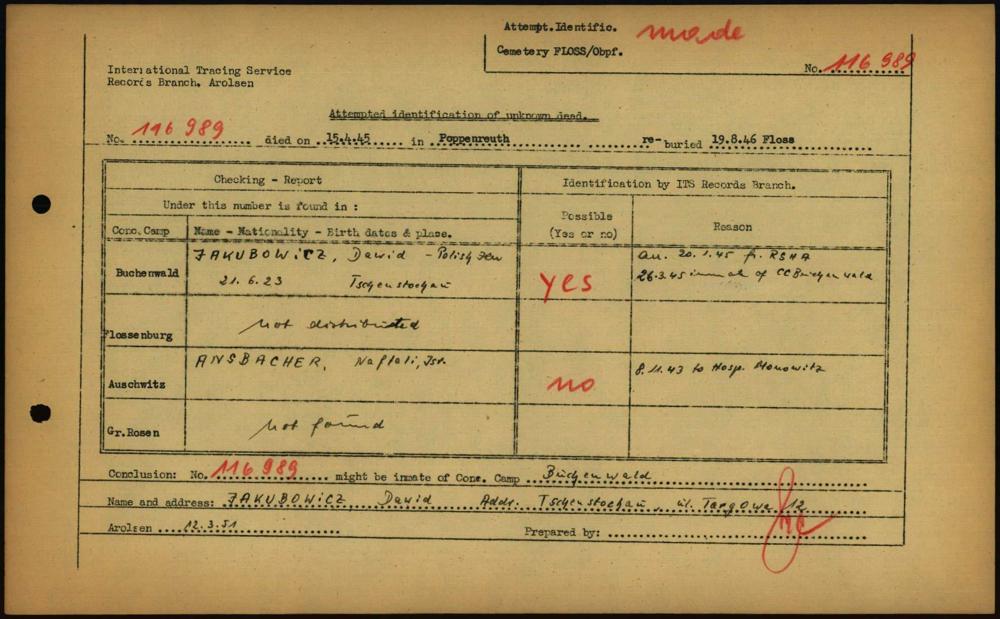 Attempt.Identific. made
Cemetery FLOSS/Obpf.
No. 116 989
International Tracing Service
Records Branch. Arolsen
Attempted identification of unknown dead.
No. 116 989 died on 15.4.45 in Poppenreuth re-buried 19.8.46 Floss
Checking - Report
Identification by ITS Records Branch.
Under this number is found in :
Possible
(Yes or no)
Reason
Conc.Camp Name - Nationality - Birth dates & place.
Buchenwald JAKUBOWICZ, Dawid - Polish Jew
21.6.23 Tschenstochau
YES
au. 20.1.45 fr. RSHA
26.3.45 inmate of CC Buchenwald
Flossenburg not distributed
Auschwitz ANSBACHER, Naftali, Isr.
no
8.11.43 to Hosp. Monowitz
Gr.Rosen not found
Conclusion: No. 116 989 might be inmate of Conc. Camp Buchenwald
Name and address: JAKUBOWICZ Dawid Addr. Tschenstochau, ul. Targowa 12
Arolsen 12.3.51
Prepared by: